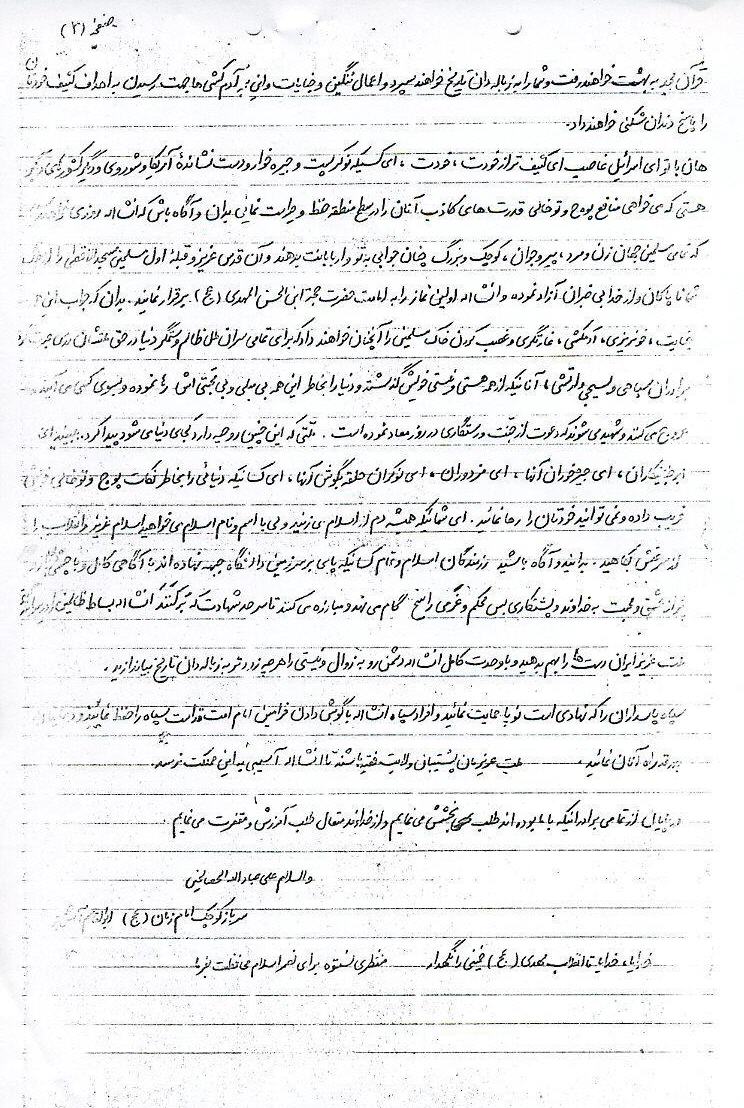 صفحه (۲)
قرآن مجید به بهشت خواهند رفت و شما را به زباله دان تاریخ خواهند سپرد و اعمال ننگین و جنایات و این آدم کشی ها جهت رسیدن به اهداف کثیف خودتان
را پاسخ دندان شکنی خواهند داد.
هان با تو ای اسرائیل غاصب ای کثیف تر از خودت ، خودت ، ای کسیکه نوکر پست و جیره خوار و دست نشاندهٔ آمریکا و شوروی و دیگر کشورهای دیگر
هستی که می خواهی منافع پوچ و تو خالی قدرت های کاذب آنان را در سطح منطقه حفظ و حراست نمائی بدان و آگاه باش که انشاءاله روزی
که تمامی مسلمین جهان زن و مرد ، پیر و جوان ، کوچک و بزرگ چنان جوابی به تو و اربابانت بدهند و آن قدس عزیز و قبلهٔ اول مسلمین مسجد الاقصی را از
شما ناپاکان و از خدا بی خبران آزاد نموده و انشاءاله اولین نماز را به امامت حضرت حجة ابن الحسن المهدی (عج) برقرار نمایند. بدان که جواب این همه
جنایت ، خونریزی ، آدمکشی ، غارتگری و غصب کردن خاک مسلمین را آنچنان خواهند داد که برای تمامی سران ملل ظالم و ستمگر دنیا درس
برادران سپاهی و بسیجی و ارتشی ، آنانیکه از همه هستی و نیستی خویش گذشته و دنیا را بخاطر این همه بی میلی و بی محبتی اش رها نموده و بسوی کسی می آیند
عروج می کنند و شهید می شوند که دعوت از جنت و رستگاری در روز معاد نموده است . ملتی که این چنین روحیه دارد کجای دنیا می شود پیدا کرد.
ابرجنایتکاران ، ای جیره خوران آنها ، ای مزدوران ، ای نوکران حلقه بگوش آنها ، ای کسانیکه دنیائی را بخاطر نکات پوچ و تو خالی
فریب داده و نمی توانید خودتان را رها نمائید. ای شمائیکه همیشه دم از اسلام می زنید ولی با اسم و نام اسلام می خواهید اسلام عزیز و انقلاب را
بکاهید. بدانید و آگاه باشید رزمندگان اسلام و تمام کسانیکه پای بر سرزمین دانشگاه جبهه نهاده اند با آگاهی کامل و با چشمی
پر از عشق و محبت به خداوند و پشتکاری بس محکم و عزمی راسخ گام می نهند و مبارزه می کنند تا سر حد شهادت که بتوانند انشاءاله بساط ظالمین را
ملت عزیز ایران دست ها را بهم بدهید و با وحدت کامل انشاءاله دشمن رو به زوال و نیستی را هر چه زودتر به زباله دان تاریخ بیاندازید .
سپاه پاسداران را که نهادی است نوپا حمایت نمائید و افراد سپاه انشاءاله با گوش دادن فرامین امام امت قداست سپاه را حفظ نمایند و
بدرقه راه آنان نمائید. ملت عزیزمان پشتیبان ولایت فقیه باشند تا انشاءاله آسیبی به این مملکت نرسد.
در پایان از تمامی برادرانیکه با ما بوده اند طلب بخشش می نمایم و از خداوند متعال طلب آمرزش و مغفرت می نمایم .
والسلام علی عباد اله الصالحین
سرباز کوچک امام زمان (عج)
خدایا، خدایا تا انقلاب مهدی (عج) خمینی را نگهدار منتظری نستوه برای نصر اسلام محافظت بفرما